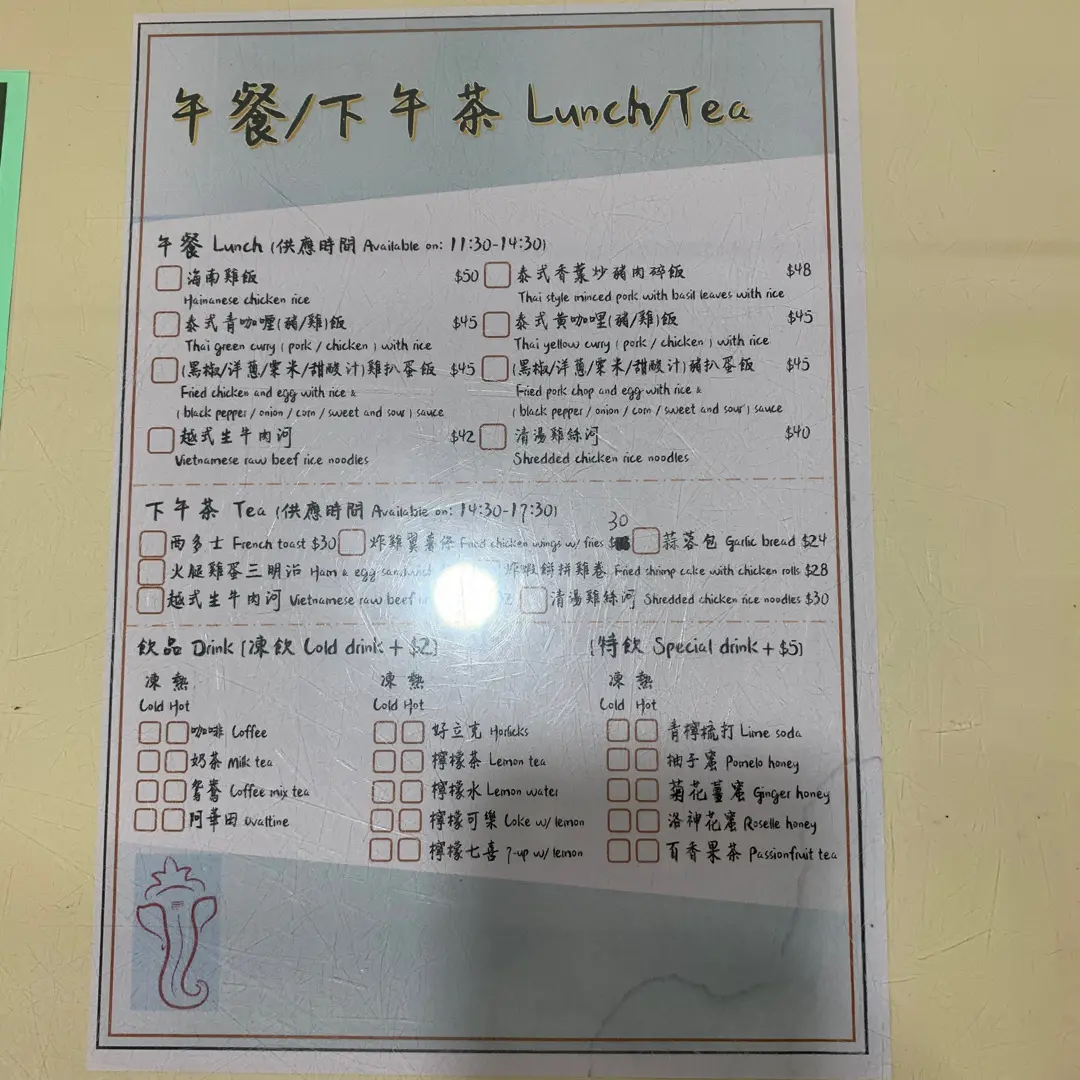 午餐/下午茶 Lunch/Tea
午餐 Lunch (供應時間 Available on: 11:30-14:30)
海南雞飯 $50 泰式香葉炒豬肉碎飯 $48
Hainanese chicken rice Thai style minced pork with basil leaves with rice
泰式青咖喱(豬/雞)飯 $45 泰式黃咖哩(豬/雞)飯 $45
Thai green curry ( pork / chicken ) with rice Thai yellow curry ( pork / chicken ) with rice
(黑椒/洋蔥/粟米/甜酸汁)雞扒蛋飯 $45 (黑椒/洋蔥/粟米/甜酸汁)豬扒蛋飯 $45
Fried chicken and egg with rice & Fried pork chop and egg with rice &
( black pepper / onion / corn / sweet and sour ) sauce ( black pepper / onion / corn / sweet and sour ) sauce
越式生牛肉河 $42 清湯雞絲河 $40
Vietnamese raw beef rice noodles Shredded chicken rice noodles
下午茶 Tea (供應時間 Available on: 14:30-17:30)
30
西多士 French toast $30 炸雞翼薯條 Fried chicken wings w/ fries $ 蒜蓉包 Garlic bread $24
火腿雞蛋三明治 Ham & egg sandwich 炸蝦餅拼雞卷 Fried shrimp cake with chicken rolls $28
越式生牛肉河 Vietnamese raw beef 清湯雞絲河 Shredded chicken rice noodles $30
飲品 Drink [凍飲 Cold drink + $2] [特飲 Special drink + $5]
凍 熱 凍 熱 凍 熱
Cold Hot Cold Hot Cold Hot
咖啡 Coffee 好立克 Horlicks 青檸梳打 Lime soda
奶茶 Milk tea 檸檬茶 Lemon tea 柚子蜜 Pomelo honey
鴛鴦 Coffee mix tea 檸檬水 Lemon water 菊花薑蜜 Ginger honey
阿華田 Ovaltine 檸檬可樂 Coke w/ lemon 洛神花蜜 Roselle honey
檸檬七喜 7-up w/ lemon 百香果茶 Passionfruit tea